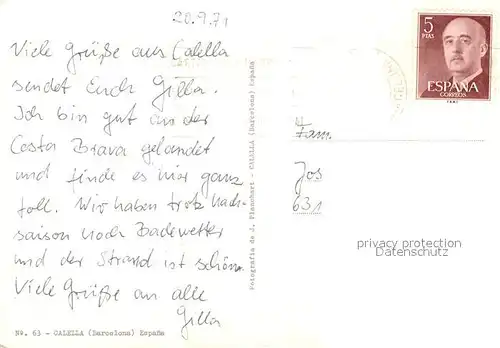 20.9.71
Viele Grüße aus Calella
sendet Euch Gilla.
Ich bin gut an der
Costa Brava gelandet
und finde es hier ganz
toll. Wir haben trotz Nach-
saison noch Badewetter
und der Strand ist schön.
Viele Grüße an alle
Gilla
No. 63 - CALELLA (Barcelona) España
Fotografía de J. Planchart - CALELLA (Barcelona) España
5
PTAS
ESPAÑA
CORREOS
Fam.
Jos
631
privacy protection
Datenschutz